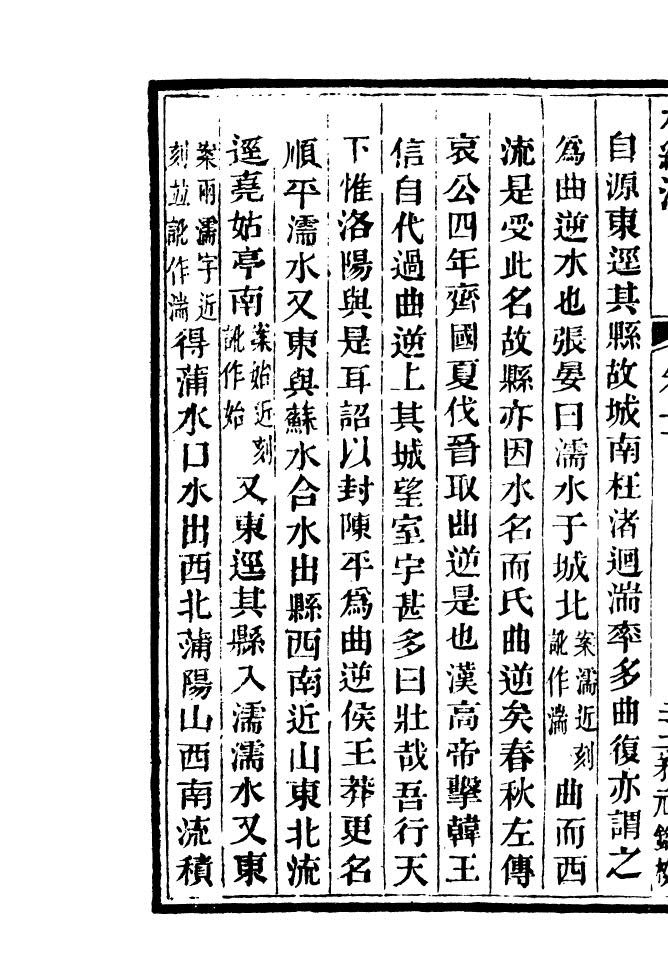 自源東逕其縣故城南枉渚迴湍率多曲復亦謂之
爲曲逆水也張晏曰濡水于城北案濡近刻訛作湍曲而西
流是受此名故縣亦因水名而氏曲逆矣春秋左傳
哀公四年齊國夏伐晉取曲逆是也漢高帝擊韓王
信自代過曲逆上其城望室宇甚多曰壯哉吾行天
下惟洛陽與是耳詔以封陳平爲曲逆侯王莽更名
順平濡水又東與蘇水合水出縣西南近山東北流
逕堯姑亭南案姑近刻訛作始又東逕其縣入濡濡水又東
案兩濡字近刻並訛作湍得蒲水口水出西北蒲陽山西南流積